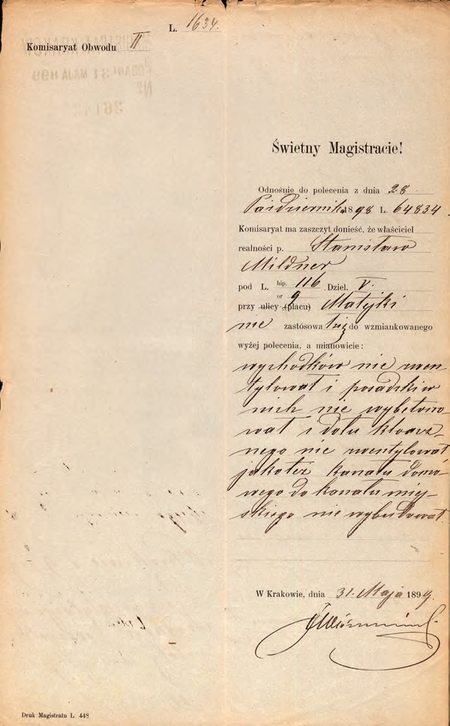 L. 1634.
Komisaryat Obwodu II
Świetny Magistracie!
Odnośnie do polecenia z dnia 28
Października 1898 L. 64834
Komisaryat ma zaszczyt donieść, że właściciel
realności p. Stanisław
Mildner
pod L. hip. 116 Dziel. V.
or 9
przy ulicy (placu) Matejki
nie zastósował się do wzmiankowanego
wyżej polecenia, a mianowicie:
wychodków nie wen-
tylował i posadzki w
nich nie wybetono-
wał i dołu kloacz-
nego nie wentylował
jakoteż kanału domo-
wego do kanału miej-
skiego nie wybudował
W Krakowie, dnia 31. Maja 1899.
Druk Magistratu L. 448